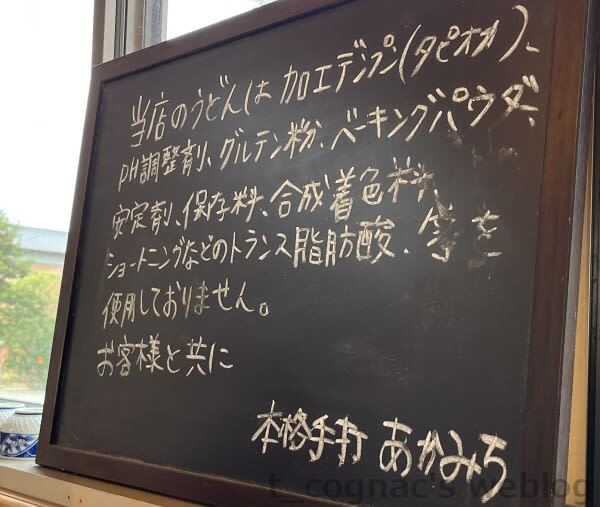 当店のうどんは加工デンプン(タピオカ)、
pH調整剤、グルテン粉、ベーキングパウダー、
安定剤、保存料、合成着色料、
ショートニングなどのトランス脂肪酸、等を
使用しておりません。
お客様と共に
本格手打 あかみち
t_cognac's weblog